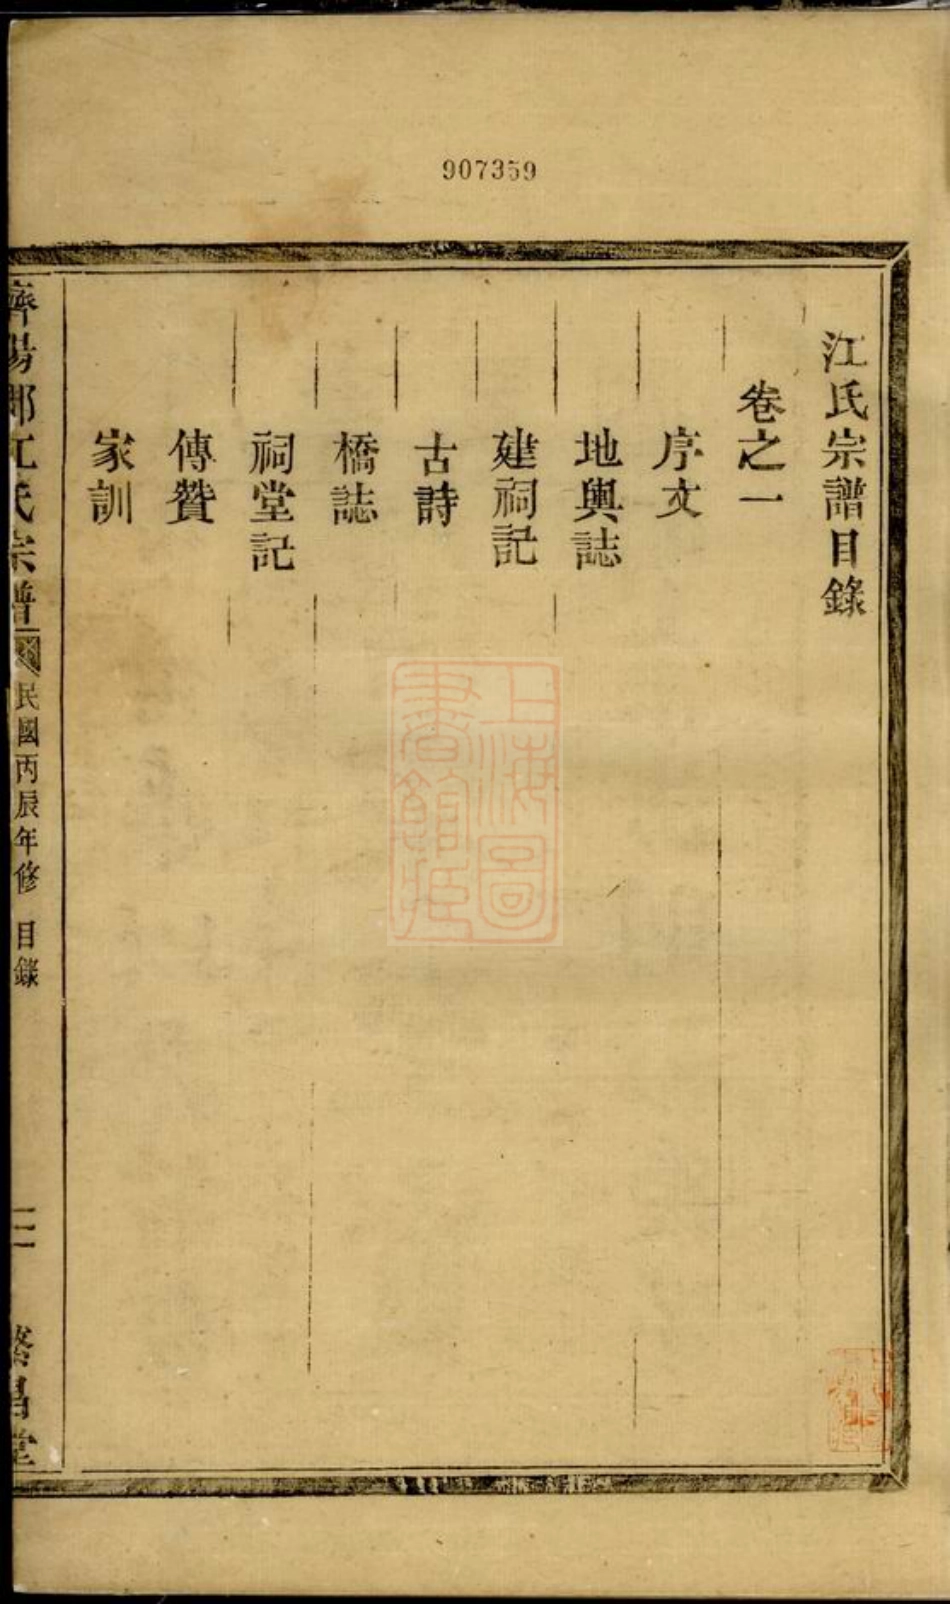 907359
江氏宗譜目錄
卷之一
序文
地輿誌
建祠記
古詩
橋誌
祠堂記
傳贊
家訓
濟陽郡江氏宗譜
民國丙辰年修 目錄
二
繁昌堂
上海圖書館藏